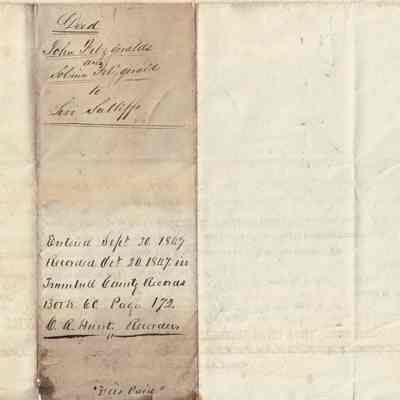 Deed
John Fitzgeralds
and
Fitzgerald
to
Levi Sutliff
Entered Sept 20 1847
Recorded Oct 20 1847 in
Trumbull County Records
Book 60 Page 172.
Recorders
"Fees Paid"